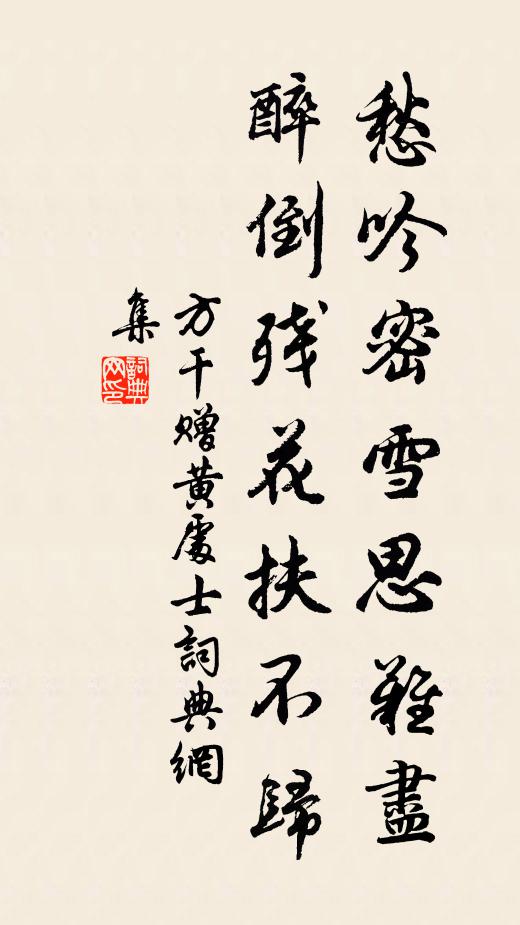 愁吟密雪思難盡
醉倒殘花扶不歸
方干贈黃處士詞典網
集
詞典網印